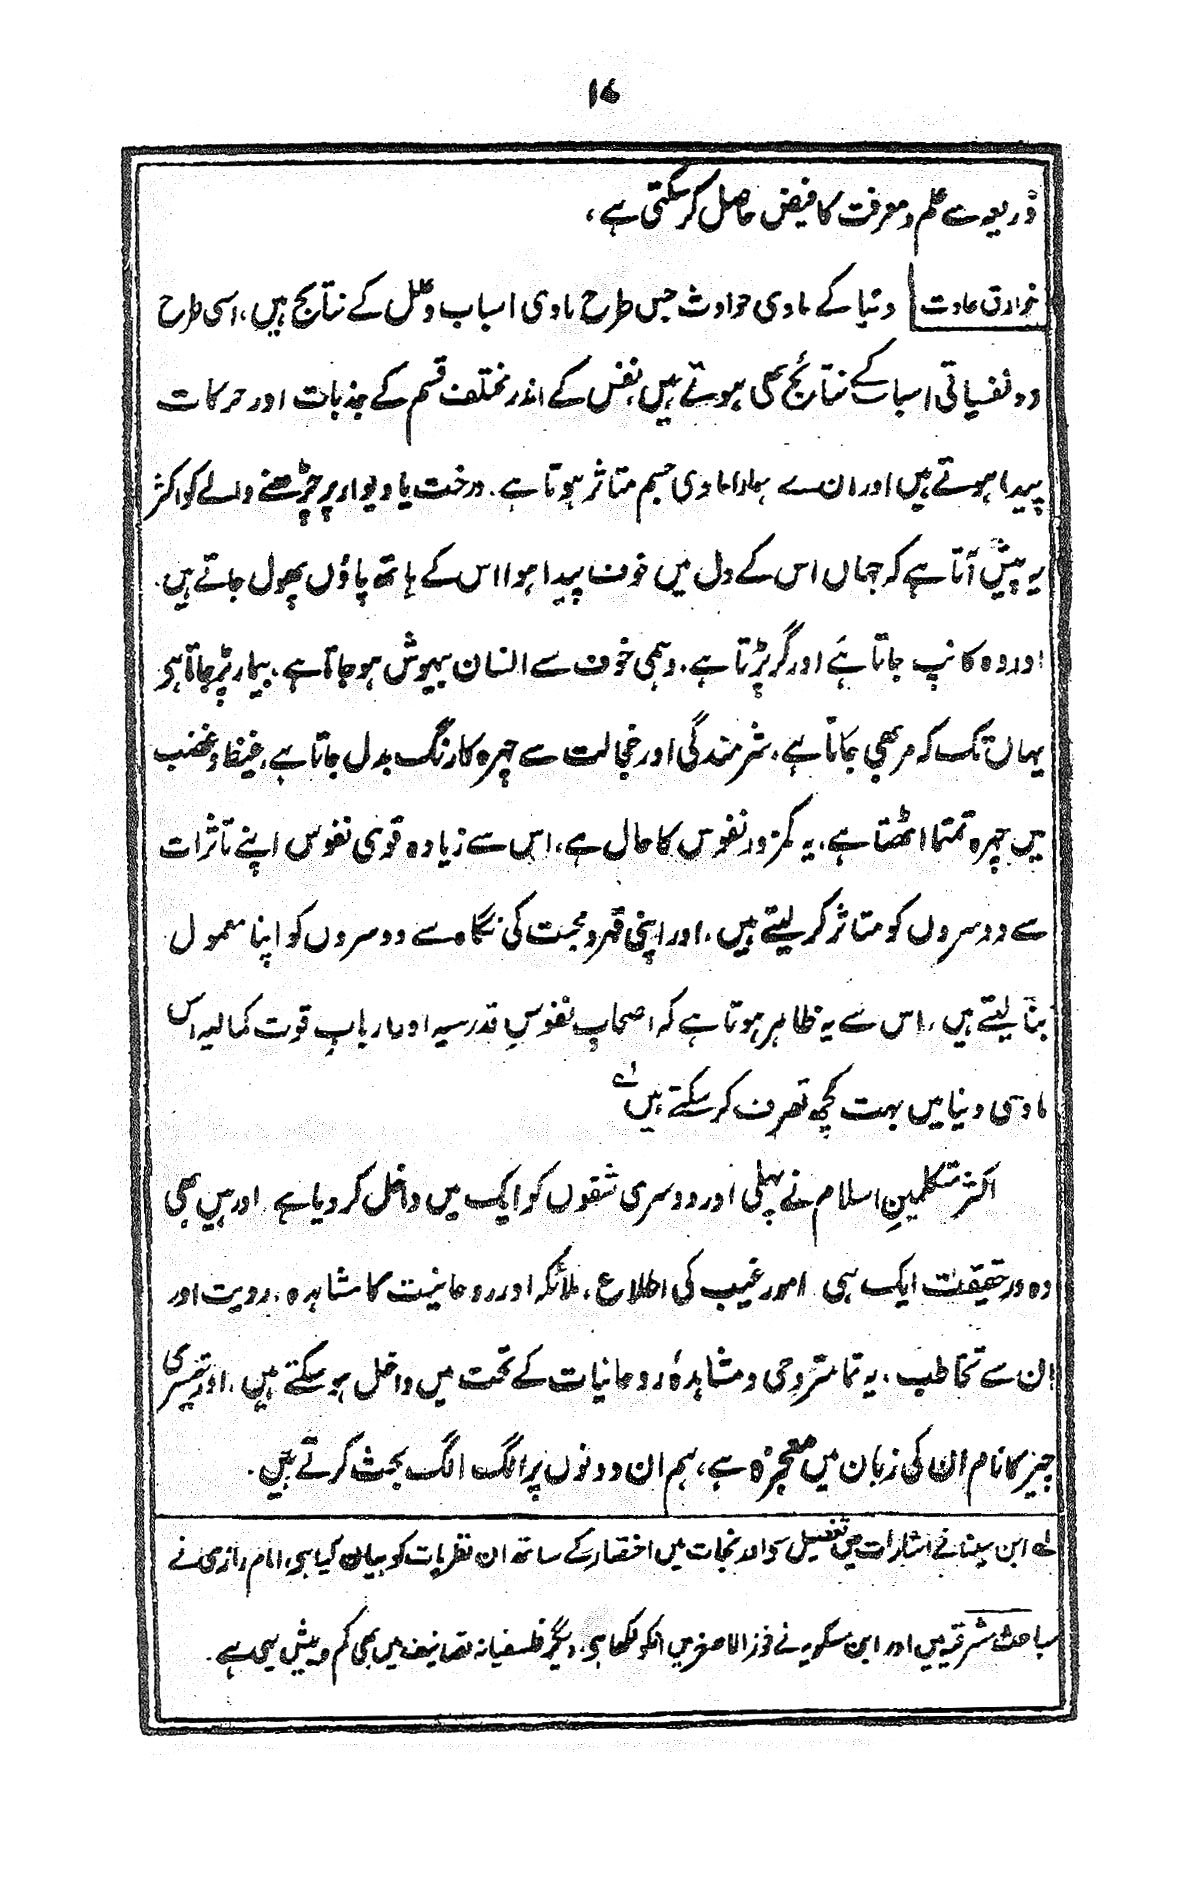 ۱۷
ذریعہ سے علم و معرفت کا فیض حاصل کر سکتی ہے،
خوارق عادت دنیا کے مادی حوادث جس طرح مادی اسباب و علل کے نتایج ہیں، اسی طرح
وہ نفسیاتی اسباب کے نتایج بھی ہوتے ہیں، نفس کے اندر مختلف قسم کے جذبات اور حرکات
پیدا ہوتے ہیں اور ان سے ہمارا مادی جسم متاثر ہوتا ہے۔ درخت یا دیوار پر چڑھنے والے کو اکثر
یہ پیش آتا ہے کہ جہاں اس کے دل میں خوف پیدا ہوا اس کے ہاتھ پاؤں پھول جاتے ہیں۔
اور وہ کانپ جاتا ہے اور گر پڑتا ہے۔ وہمی خوف سے انسان بیہوش ہو جاتا ہے، بیمار پڑ جاتا ہی
یہاں تک کہ مر بھی جاتا ہے، شرمندگی اور خجالت سے چہرہ کا رنگ بدل جاتا ہے، غیظ و غضب
میں چہرہ تمتما اٹھتا ہے، یہ کمزور نفوس کا حال ہے، اس سے زیادہ قوی نفوس اپنے تاثرات
سے دوسروں کو متاثر کر لیتے ہیں، اور اپنی قہر و محبت کی نگاہ سے دوسروں کو اپنا معمول
بنا لیتے ہیں، اس سے یہ ظاہر ہوتا ہے کہ اصحابِ نفوسِ قدسیہ اور اربابِ قوت کمالیہ اس
مادی دنیا میں بہت کچھ تصرف کر سکتے ہیں ۱ے
اکثر متکلمینِ اسلام نے پہلی اور دوسری شقوں کو ایک میں داخل کر دیا ہے اور ہیں بھی
وہ در حقیقت ایک ہی امور غیب کی اطلاع، ملائکہ اور روحانیت کا مشاہدہ، رویت اور
ان سے تخاطب، یہ تمامتر وحی و مشاہدۂ روحانیات کے تحت میں داخل ہو سکتے ہیں، اور تیسری
چیز کا نام ان کی زبان میں معجزہ ہے، ہم ان دونوں پر الگ الگ بحث کرتے ہیں۔
۱ے ابن سینا نے اشارات میں تفصیل سی اور نجات میں اختصار کے ساتھ ان نظریات کو بیان کیا ہی، امام رازی نے
مباحث مشرقیہ میں اور ابن مسکویہ نے فوز الاصغر میں انکو لکھا ہی، دیگر فلسفیانہ تصانیف میں بھی کم و بیش یہی ہے۔